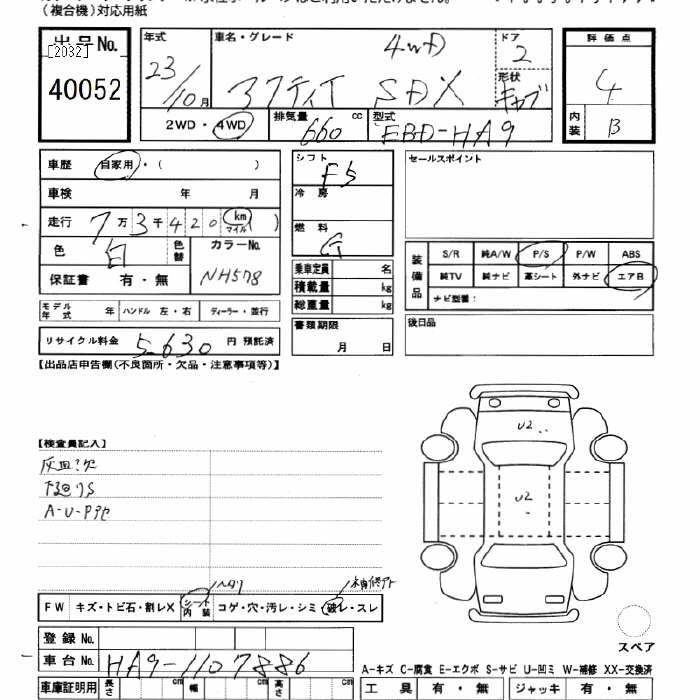 （複合機）対応用紙
出品No.
[2032]
40052
年式 車名・グレード 4WD ドア 2
23/10月 アクティT SDX 形状 キャブ
2WD・4WD 排気量 660 cc 型式 EBD-HA9
評価点
4
内装 B
車歴 自家用・（ ）
車検 年 月
走行 7万3千420 km マイル ( )
色 白 色替 カラーNo. NH578
保証書 有・無
モデル年式 年 ハンドル 左・右 ディーラー・並行
リサイクル料金 5,630 円 預託済
シフト F5
冷房
燃料 G
乗車定員 名
積載量 kg
総重量 kg
書類期限
月 日
セールスポイント
装備品 S/R 純A/W P/S P/W ABS
純TV 純ナビ 革シート 外ナビ エアB
ナビ型番：
後日品
【出品店申告欄（不良箇所・欠品・注意事項等）】
【検査員記入】
灰皿？欠
下回りS
A-U-P
U2
U2
ヘタリ
補修アト
FW キズ・トビ石・割レX シート内装 コゲ・穴・汚レ・シミ 破レ・スレ
登録 No.
車台 No. HA9-1107886
車庫証明用 長さ cm 幅 cm 高さ cm
スペア
A-キズ C-腐食 E-エクボ S-サビ U-凹ミ W-補修 XX-交換済
工具 有・無 ジャッキ 有・無